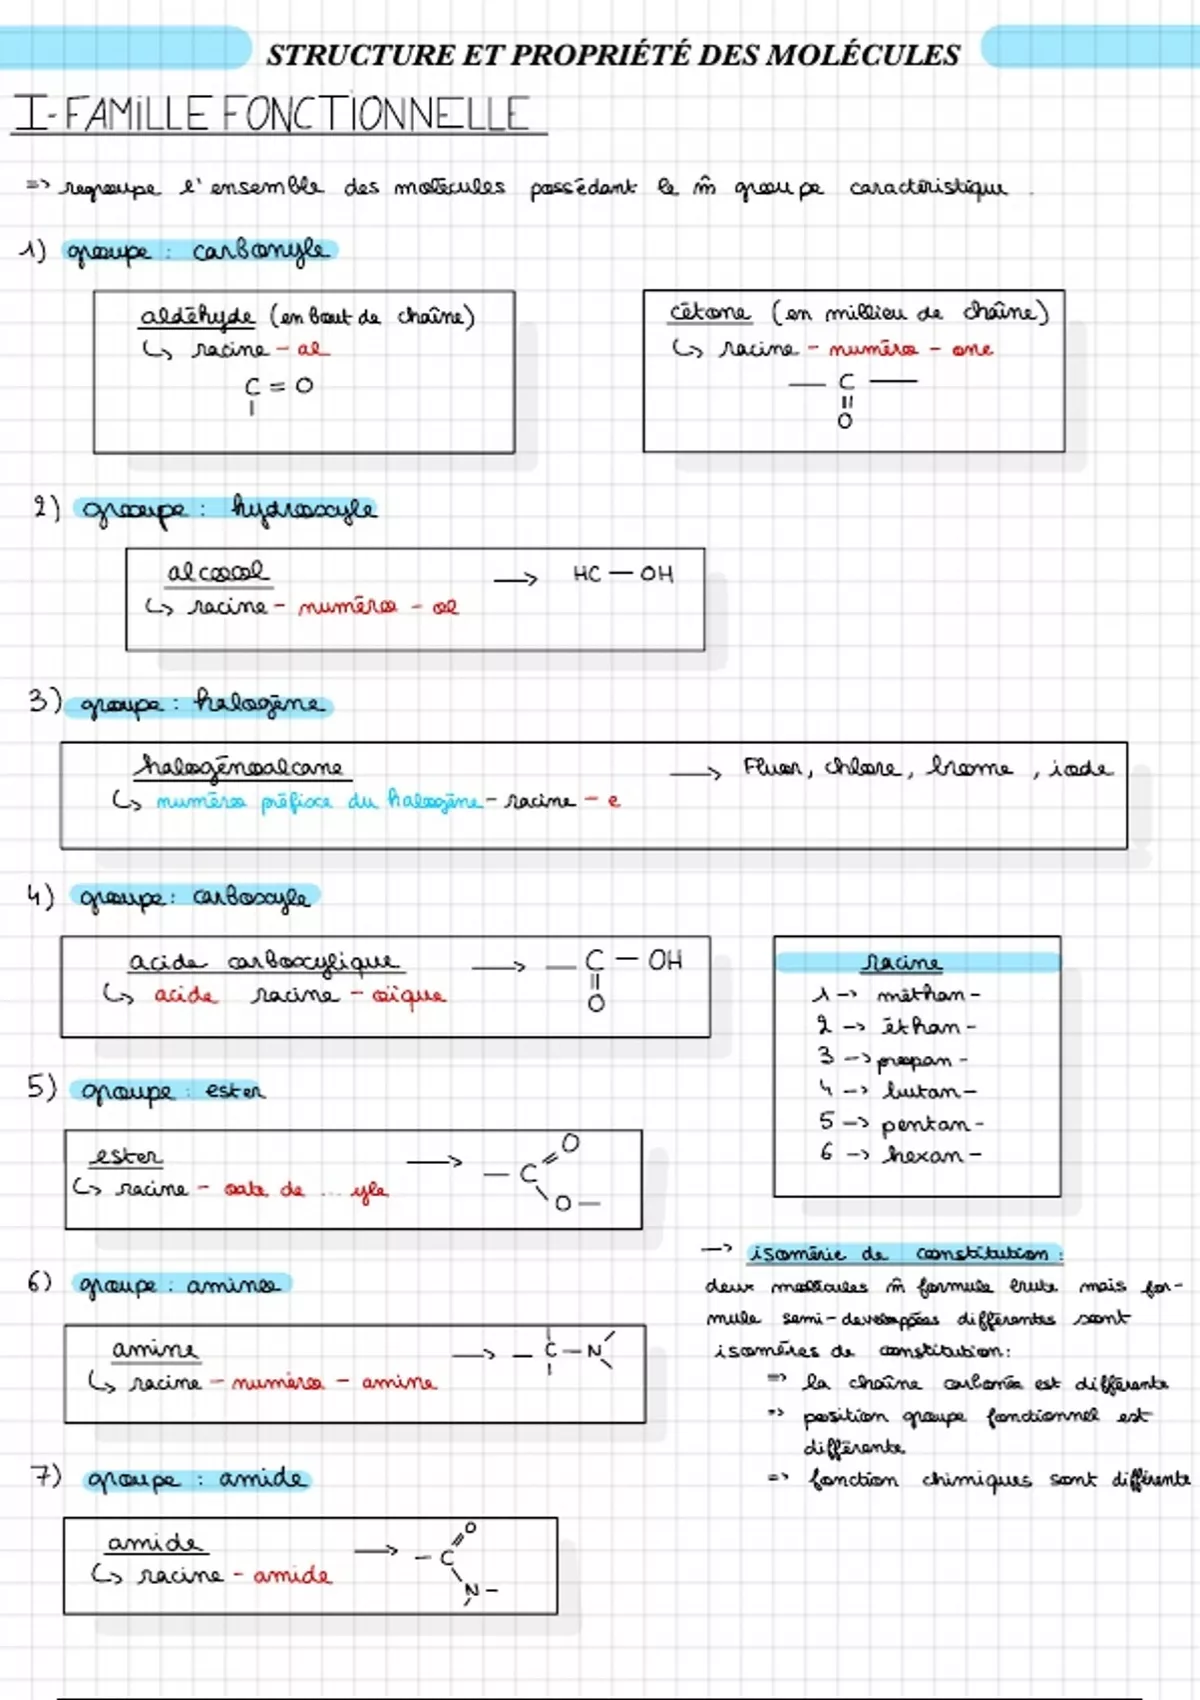 STRUCTURE ET PROPRIÉTÉ DES MOLÉCULES
I-FAMILLE FONCTIONNELLE
=> regroupe l'ensemble des molécules possédant le m̂ groupe caractéristique.
1) groupe : carbonyle
aldéhyde (en bout de chaîne)
↳ racine - al
C = O
cétone (en millieu de chaîne)
↳ racine - numéro - one
— C —
O
2) groupe : hydroxyle
alcool → HC — OH
↳ racine - numéro - ol
3) groupe : halogène
halogénoalcane → Fluor, chlore, brome, iode
↳ numéro préfixe du halogène - racine - e
4) groupe : carboxyle
acide carboxylique → — C — OH
O
↳ acide racine - oïque
racine
1 -> méthan-
2 -> éthan-
3 -> propan-
4 -> butan-
5 -> pentan-
6 -> hexan-
5) groupe : ester
ester → — C O
O —
↳ racine - oate de ... yle
6) groupe : amine
amine → — C — N
↳ racine - numéro - amine
7) groupe : amide
amide → — C O
N —
↳ racine - amide
-> isomérie de constitution :
deux molécules m̂ formule brute mais for-
mule semi-developpées différentes sont
isomères de constitution :
=> la chaîne carbonée est différente
=> position groupe fonctionnel est
différente
=> fonction chimiques sont différente